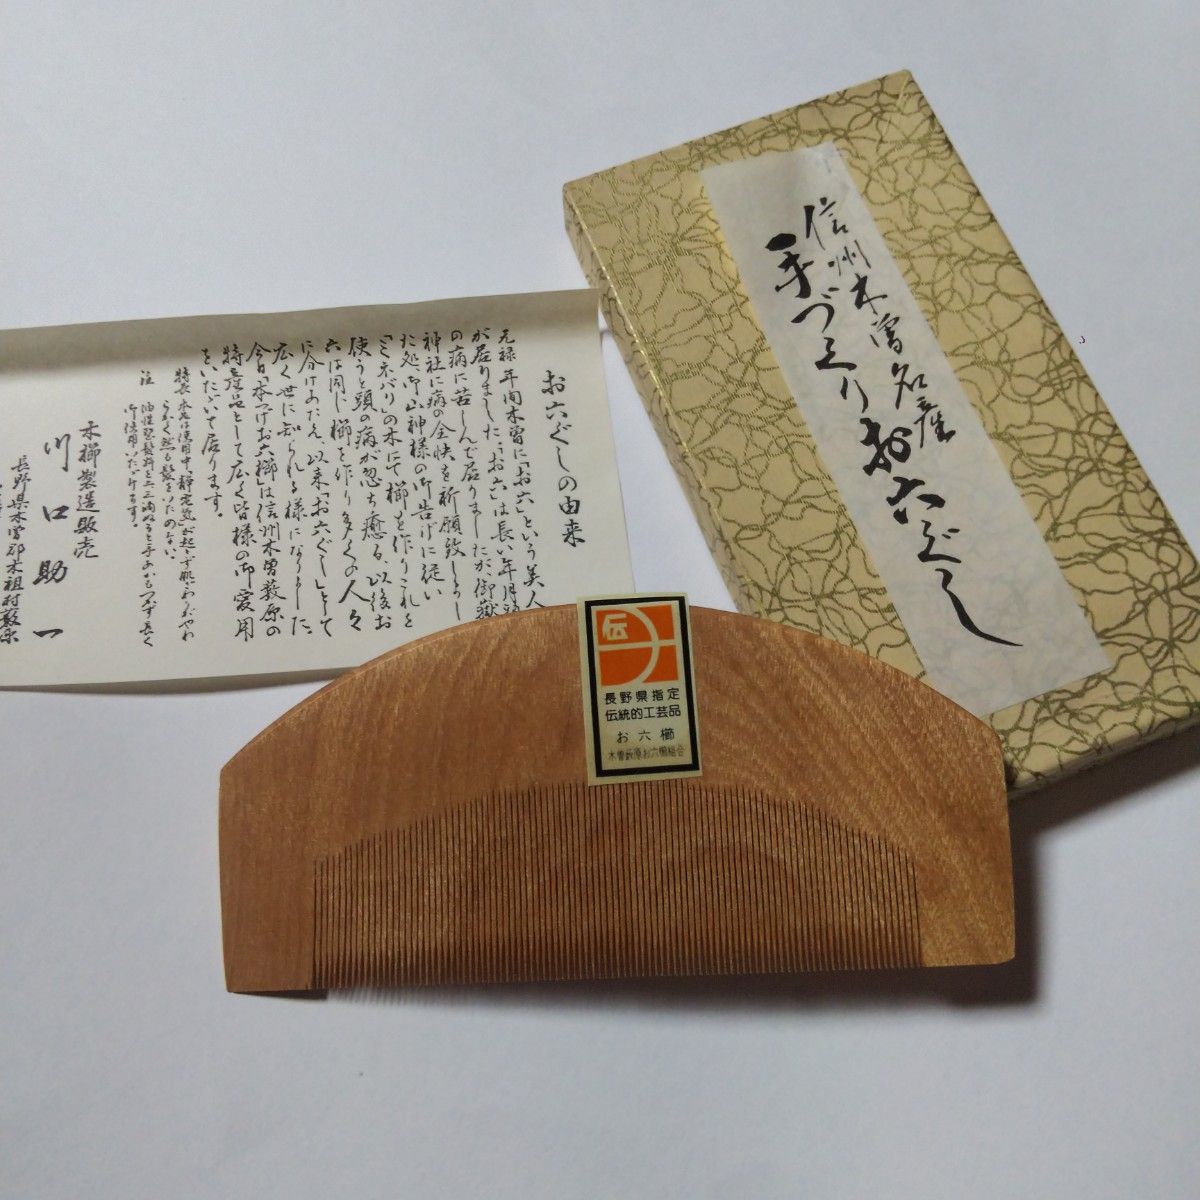 お六ぐしの由来
元禄年間木曽に「お六」という美人
が居りました、「お六」は長い年月頭
の病に苦しんで居りましたが御嶽
神社に病の全快を祈願致しまし
た処、御山神様の御告げに従い
「ミネバリ」の木にて櫛を作りこれを
使うと頭の病が忽ち癒る、以後お
六は同じ櫛を作り多くの人々
に分けあたえ、以来「お六ぐし」として
広く世に知られる様になりました、
今日「本つげお六櫛」は信州木曽薮原の
特産品として広く皆様の御愛用
をいただいて居ります。
特長 本品は使用中、静電気が起らず肌ざわりがやわ
らかく然も髪をいためない。
注 油性整髪料を二三滴ぬると手あかもつかず長く
御使用いただけます。
木櫛製造販売
川口助一
長野県木曽郡木祖村薮原
信州木曽名産
手づくりお六ぐし
伝
長野県指定
伝統的工芸品
お六櫛
木曽薮原お六櫛組合